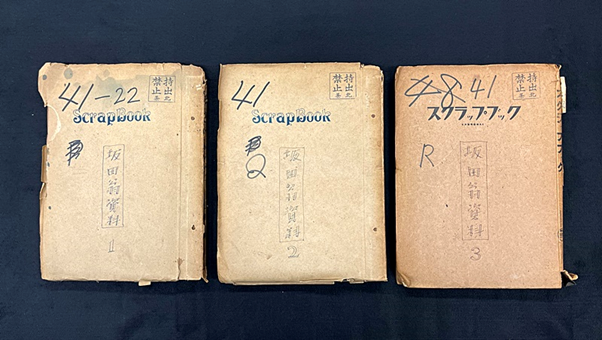 41-22
持出
禁止
ScrapBook
P
坂田翁資料
1
41
持出
禁止
ScrapBook
Q
坂田翁資料
2
48 41
持出
禁止
スクラップ・ブック
R
坂田翁資料
3